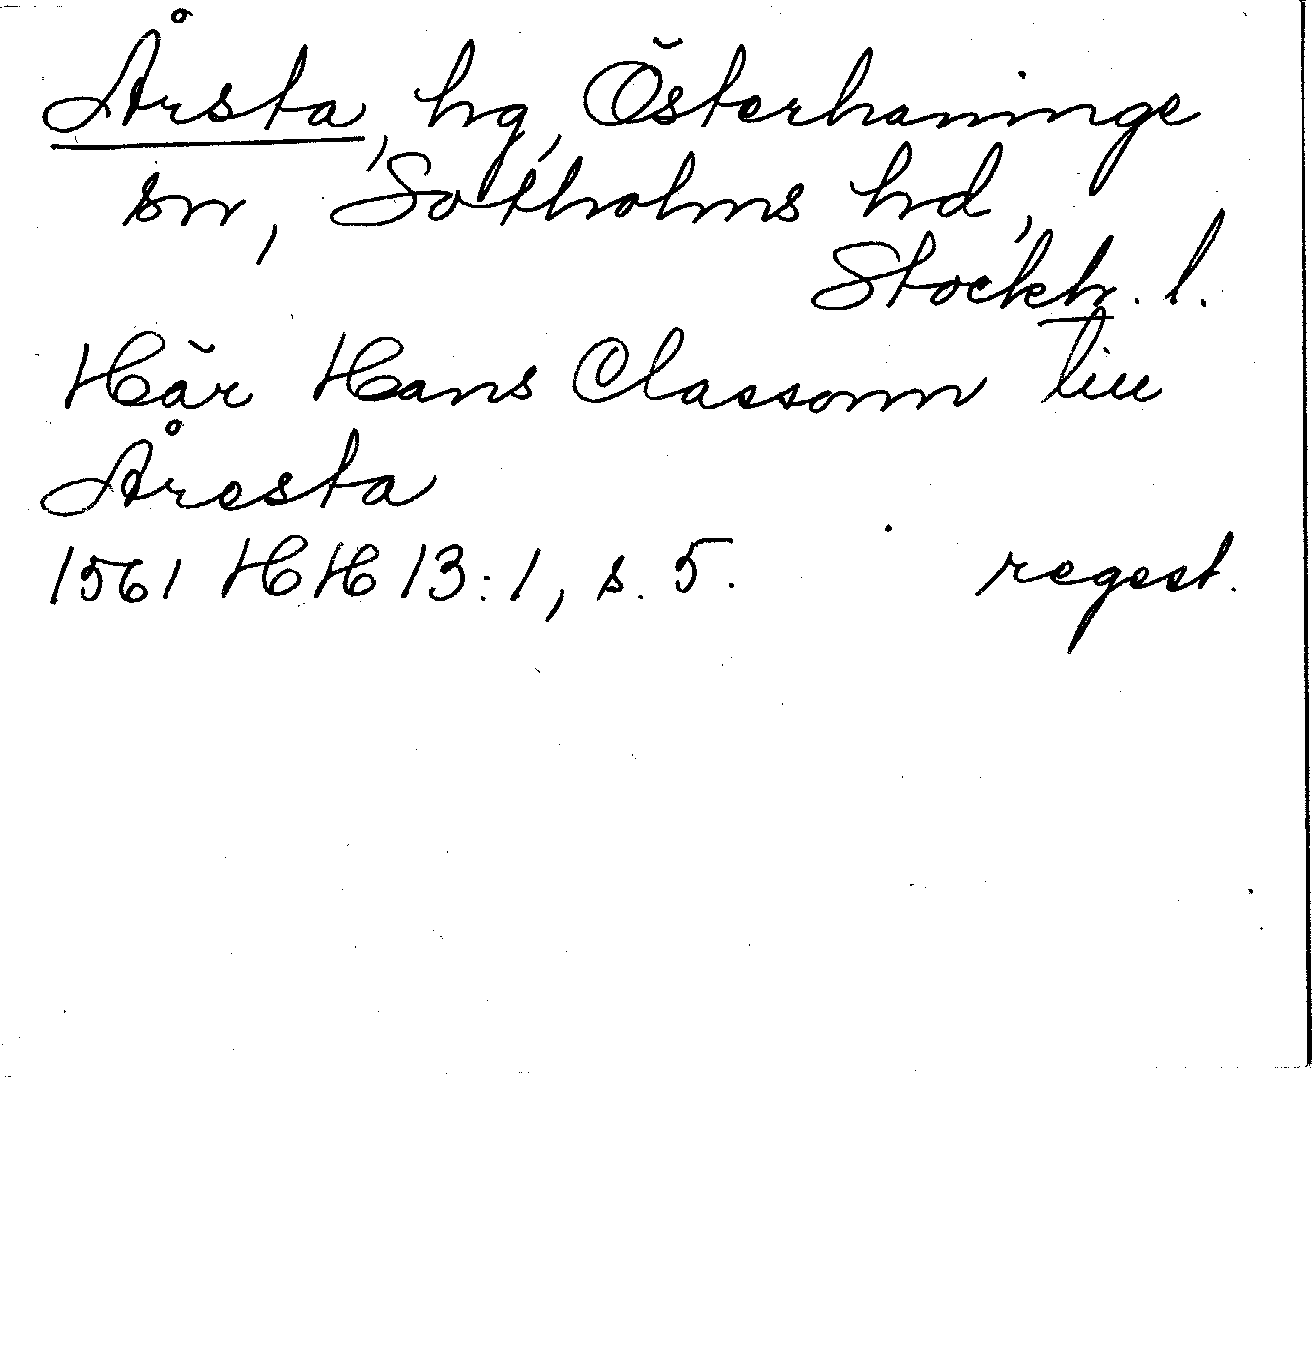 Årsta, hg, Österhaninge
sn, Sotholms hd,
Stockh. l.
Här Hans Classonn tiil
Åresta
1561 HH 13:1, s. 5. regest.